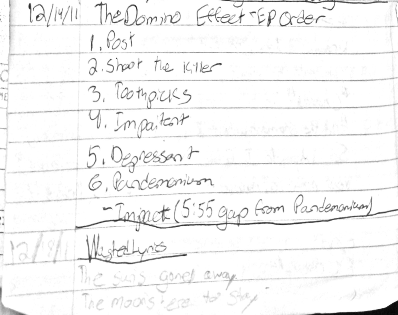 12/14/11 The Domino Effect - EP Order
1. Post
2. Shoot the Killer
3. Toothpicks
4. Impaitent
5. Depressant
6. Pandemonium
- Impact (5:55 gap from Pandemonium)
Lyrics
The suns gone away
The moons here to stay